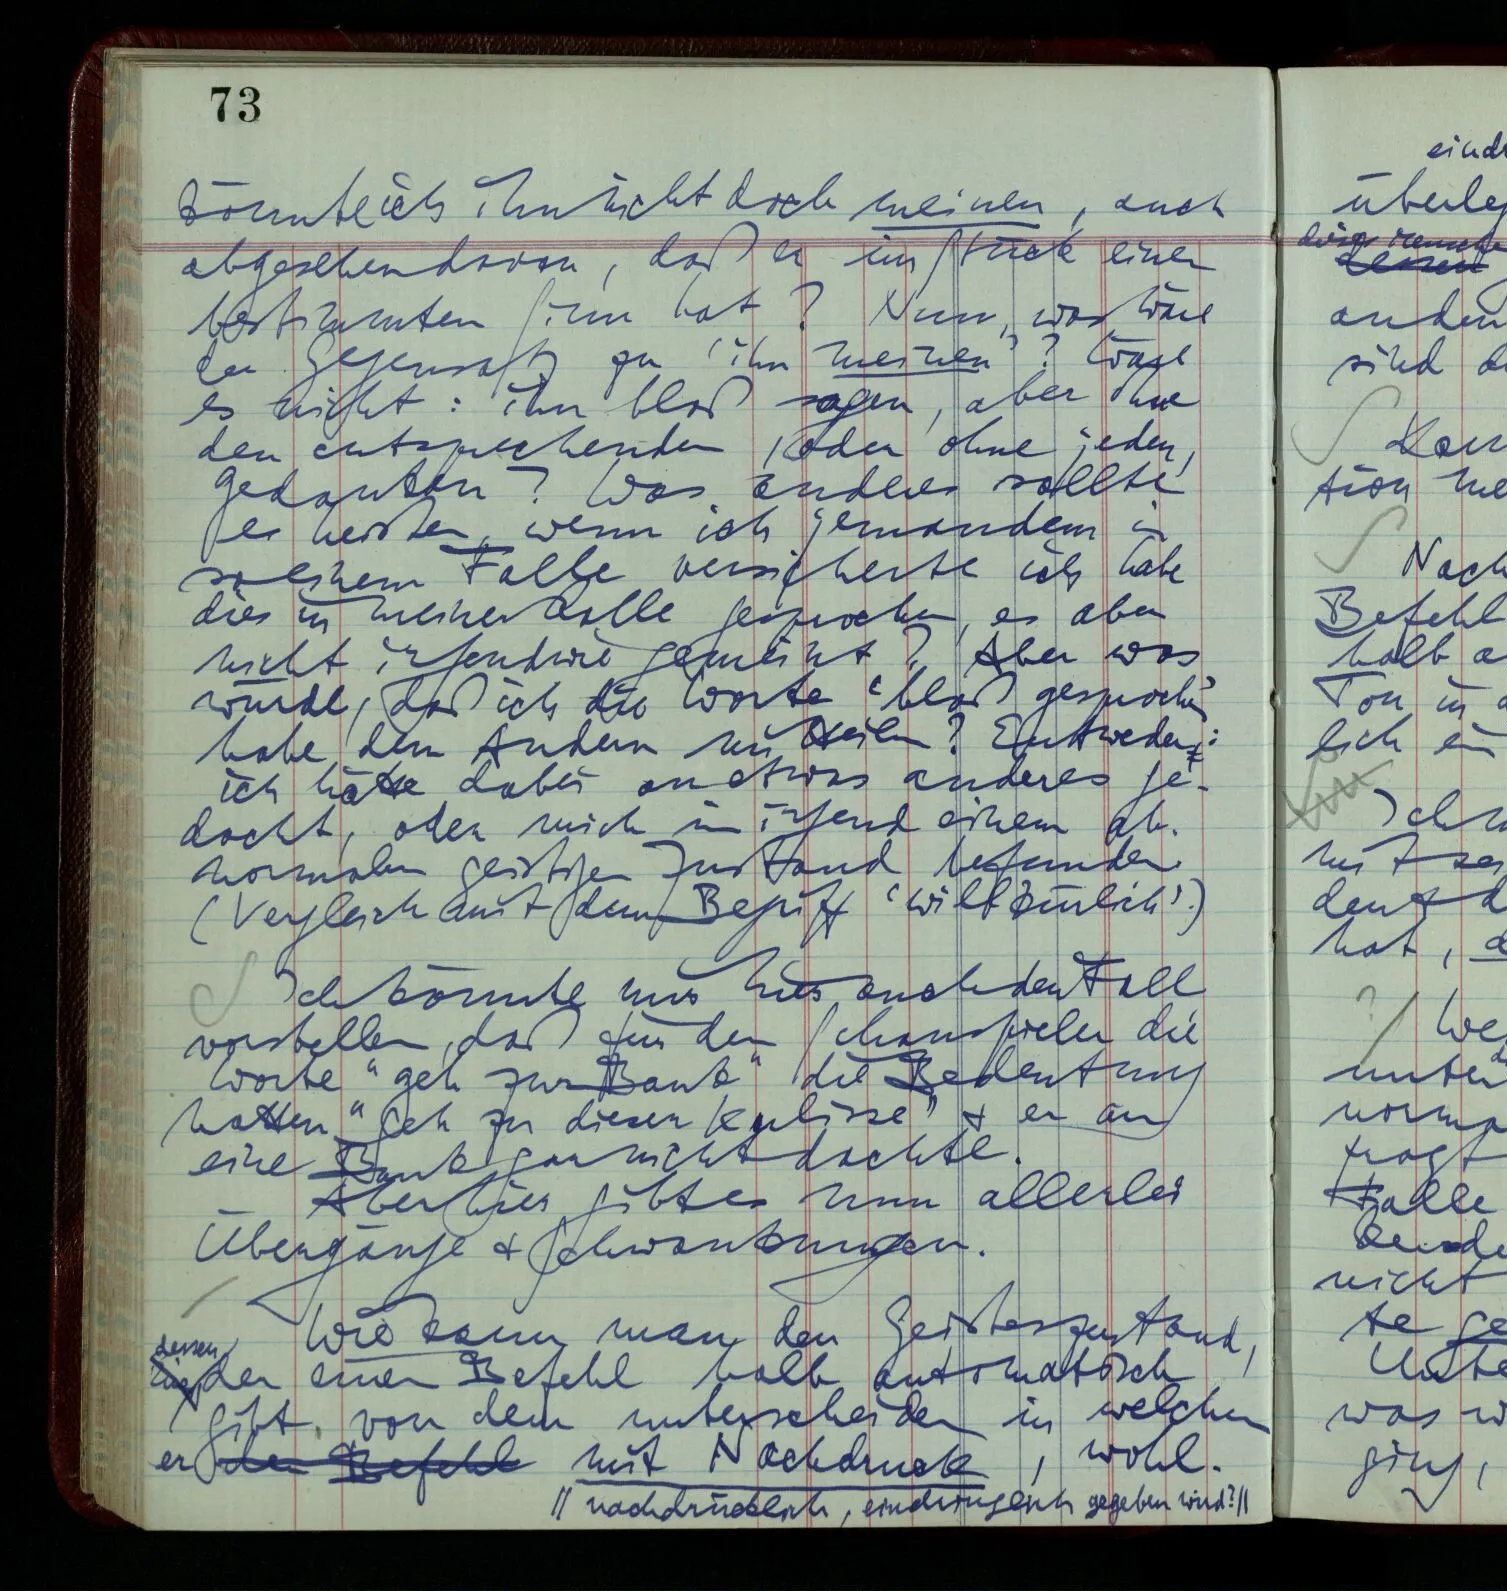 73
könnte ich ihn nicht doch meinen, auch
abgesehen davon, daß er im Stück einen
bestimmten Sinn hat? Nun, was wäre
der Gegensatz zu 'ihn meinen'? Wäre
es nicht: ihn bloß sagen, aber ohne
den entsprechenden, oder ohne jeden,
Gedanken? Was anderes sollte
es heißen, wenn ich jemandem in
so einem Falle versicherte ich habe
dies in meiner Rolle gesprochen, es aber
nicht irgendwie gemeint? Aber was
würde, daß ich die Worte 'bloß gesprochen'
habe, dem Andern mitteilen? Entweder:
ich hätte dabei an etwas anderes ge-
dacht, oder mich in irgend einem ab-
normalen geistigen Zustand befunden
(Vergleich mit dem Begriff 'willkürlich'.)
Ich könnte mir hier auch den Fall
vorstellen, daß für den Schauspieler die
Worte "geh zur Bank" die Bedeutung
hatten "Geh zu dieser Kulisse" & er an
eine Bank gar nicht dachte.
Aber hier gibt es nun allerlei
Übergänge & Schwankungen.
Wie kann man den Geisteszustand,
dessen
der einen Befehl halb automatisch
gibt, von dem unterscheiden in welchem
er den Befehl mit Nachdruck, wohl.
// nachdrücklich, eindringlich gegeben wird? //
überleg
dessen
ander
sind d
Kan
tion me
Nach
Befehl
halb a
Ton in d
lich ei
Ich
mit se
denkt d
hat, d
?/ We
unter
norma
fragt
Falle
nicht
te ge
Unte
was w
ging,